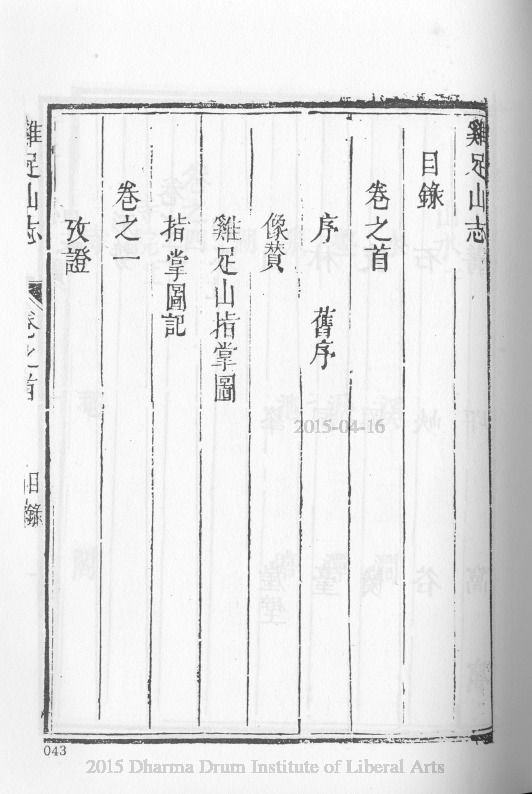 雞足山志
目錄
卷之首
序 舊序
像贊
雞足山指掌圖
指掌圖記
卷之一
攷證
雞足山志
卷之首
目錄
2015-04-16
043
2015 Dharma Drum Institute of Liberal Arts